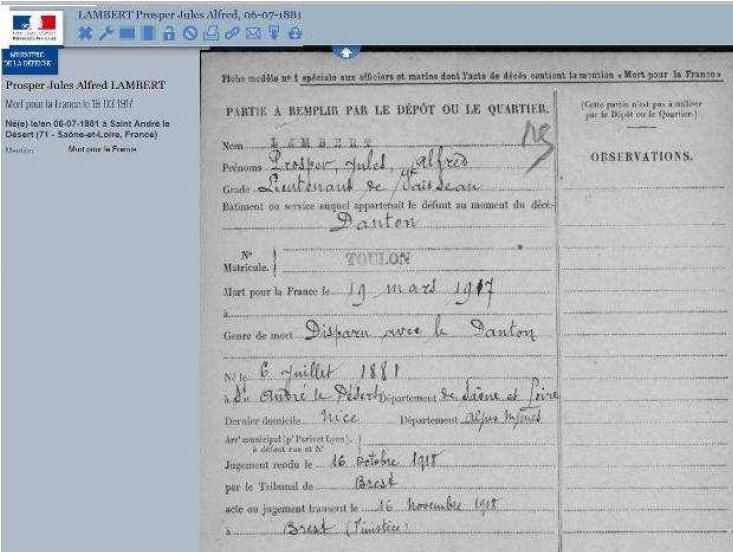 LAMBERT Prosper Jules Alfred, 06-07-1881
MINISTÈRE
DE LA DÉFENSE
Prosper Jules Alfred LAMBERT
Mort pour la France le 19 03 1917
Né(e) le/en 06-07-1881 à Saint André le
Désert (71 - Saône-et-Loire, France)
Mention Mort pour la France
Fiche modèle n° 1 spéciale aux officiers et marins dont l'acte de décès contient la mention « Mort pour la France »
PARTIE À REMPLIR PAR LE DÉPÔT OU LE QUARTIER.
(Cette partie n'est pas à utiliser
par le Dépôt ou le Quartier.)
OBSERVATIONS.
Nom LAMBERT
Prénoms Prosper, Jules, Alfred
Grade Lieutenant de Vaisseau
Bâtiment ou service auquel appartenait le défunt au moment du décè
Danton
N° Matricule. TOULON
Mort pour la France le 19 mars 1917
à
Genre de mort Disparu avec le Danton
Né le 6 Juillet 1881
à St André le Désert Département de Saône et Loire
Dernier domicile Nice Département Alpes Mmes
Arrt municipal (pr Paris et Lyon),
à défaut rue et N°
Jugement rendu le 16 octobre 1918
par le Tribunal de Brest
acte ou jugement transcrit le 16 Novembre 1918
à Brest (Finistère)